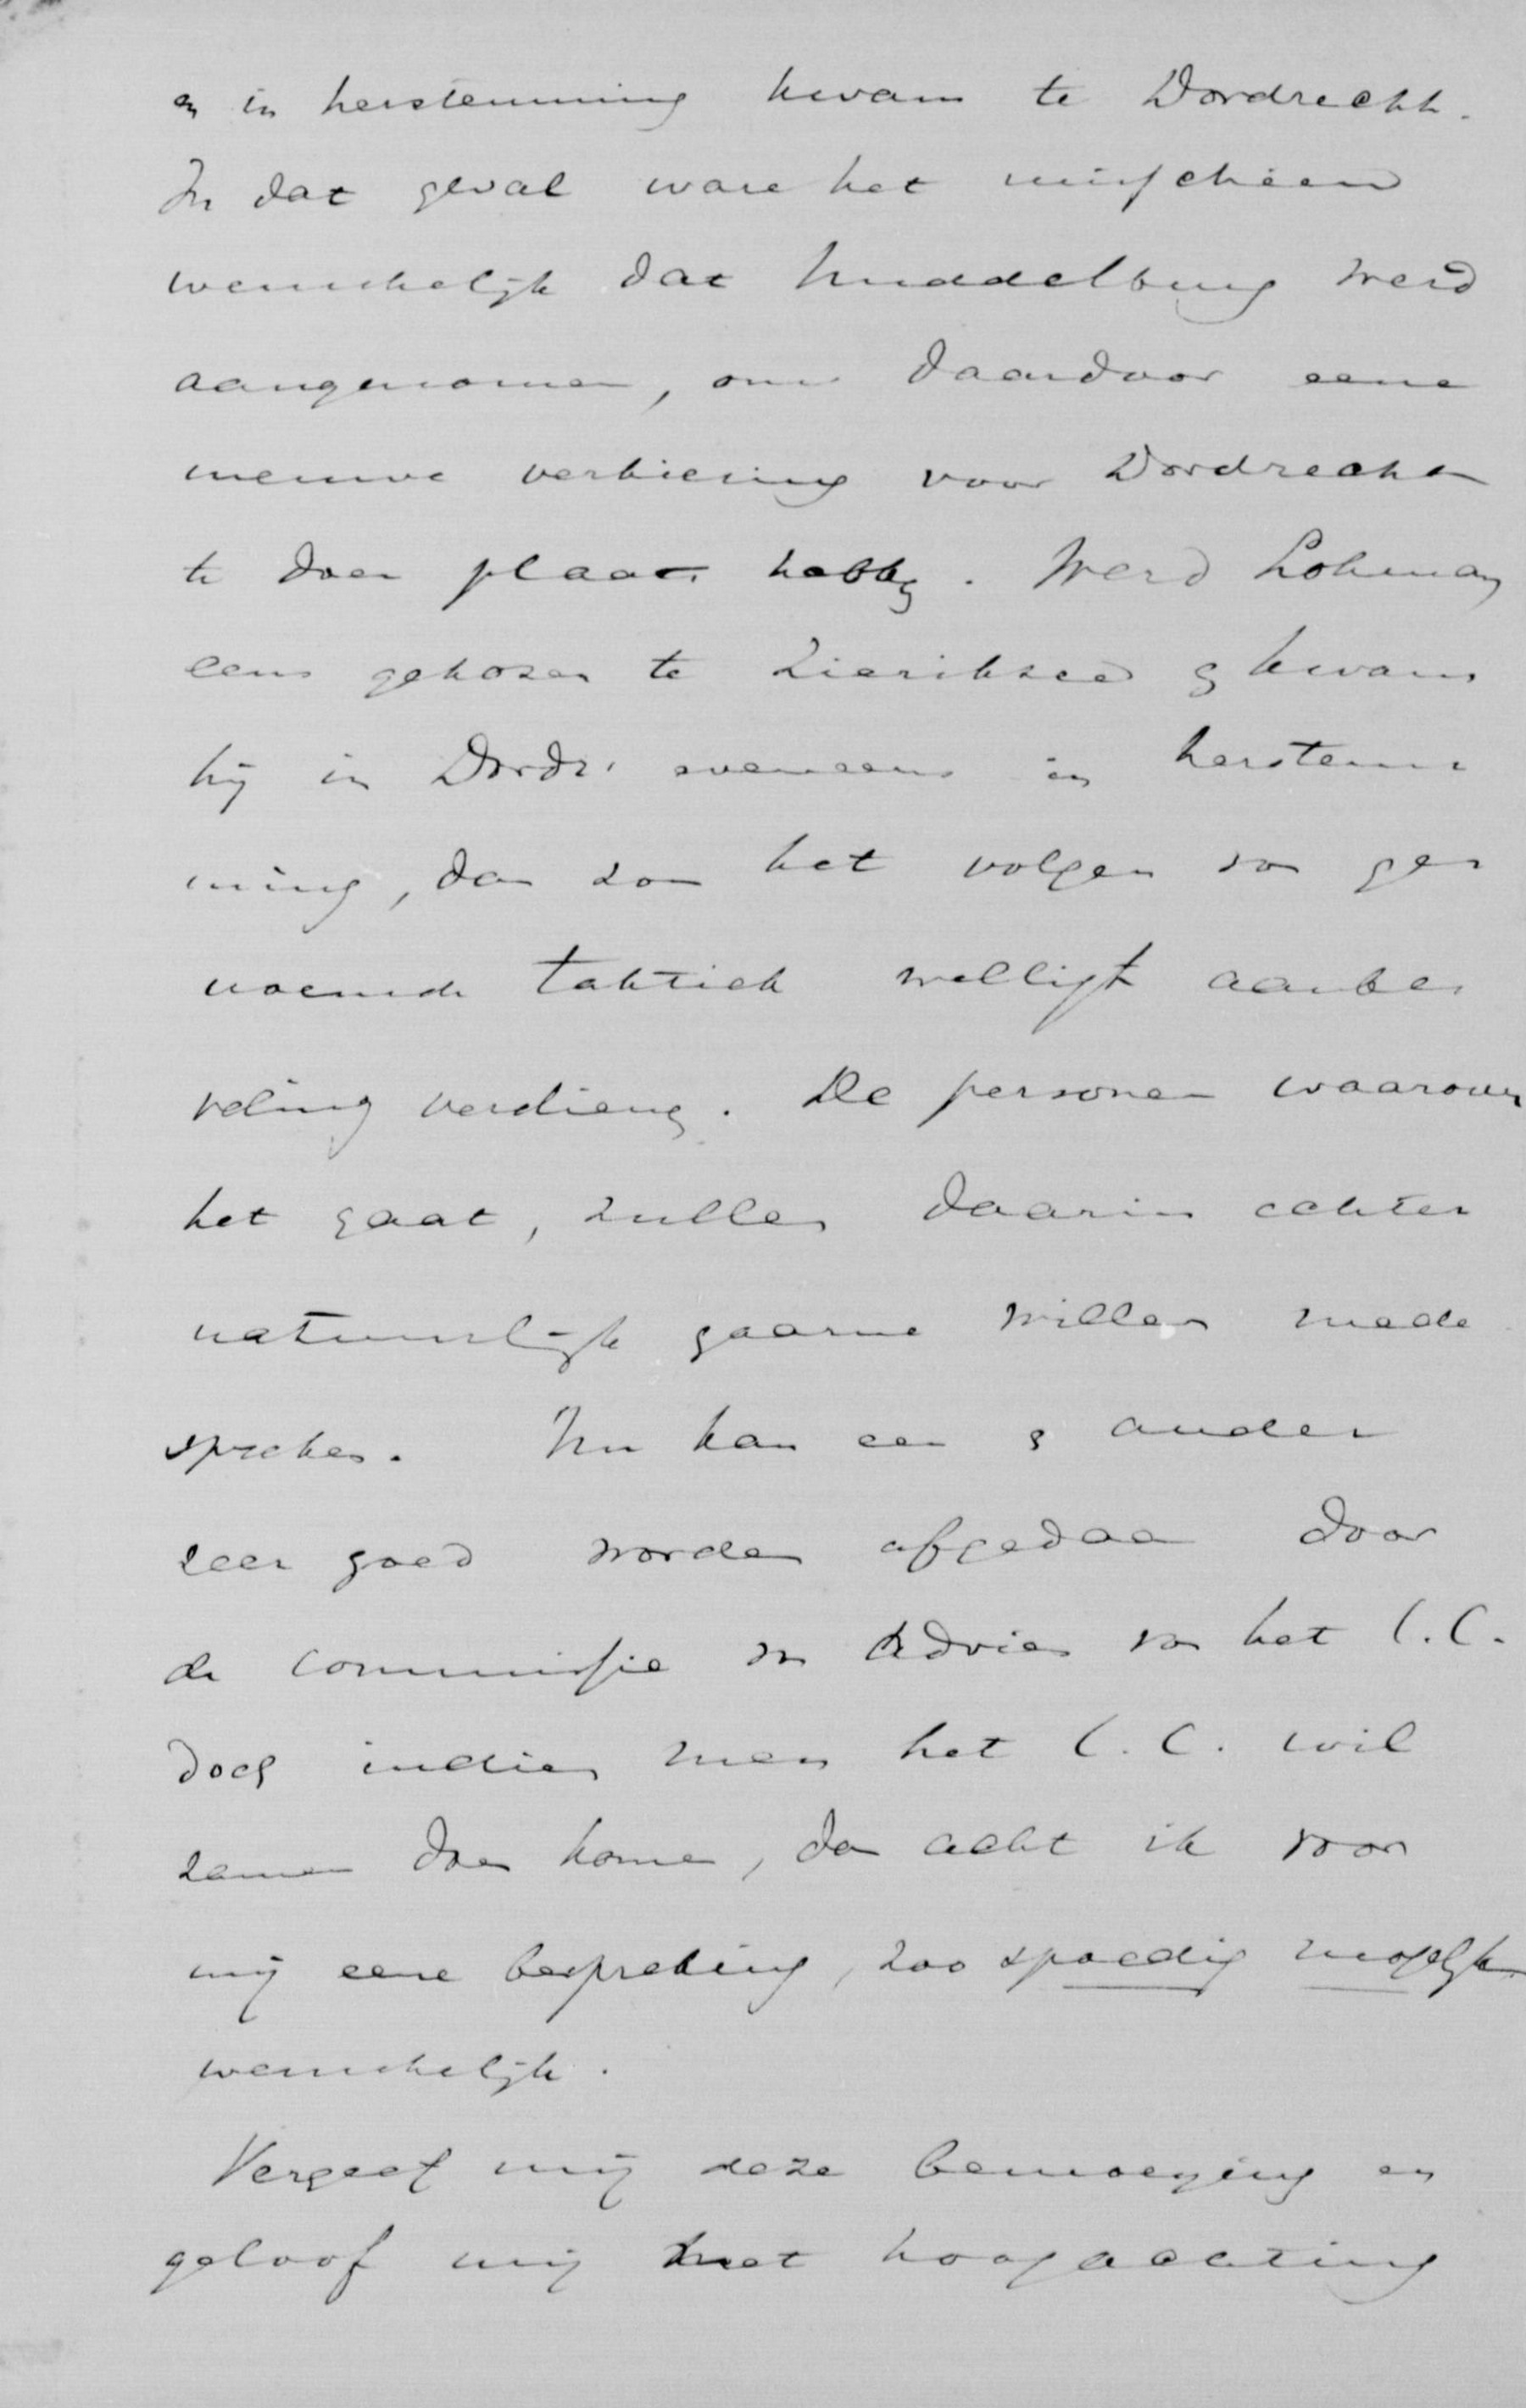 en in herstemming kwam te Dordrecht.
In dat geval ware het misschien
wenschelijk dat Middelburg werd
aangenomen, om daardoor eene
nieuwe verkiezing voor Dordrecht
te doen plaats hebben. Werd Lohman
eens gekozen te Zierikzee en kwam
hij in Dordr. eveneens in herstem
ming, dan zou het volgen van ge
noemde taktiek welligt aanbe
veling verdienen. De personen waarom
het gaat, zullen daarin echter
natuurlijk gaarne willen mede
spreken. Nu kan een en ander
zeer goed worden afgedaan door
de commissie van Advies van het C.C.
doch indien men het C.C. wil
zamen doen komen, dan acht ik voor
mij eene bespreking, zoo spoedig mogelijk
wenschelijk.
Vergeef mij deze bemoeijing en
geloof mij met hoogachting